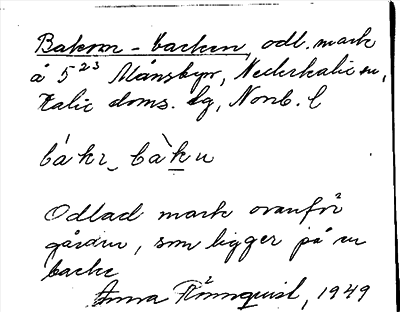 Bakom-backen, odl. mark
å 5²³ Månsbyn, Nederkalix sn,
Kalix doms. lg, Norrb. l
bákr_ bàku
Odlad mark ovanför
gården, som ligger på en
backe
Anna Rönnquist, 1949